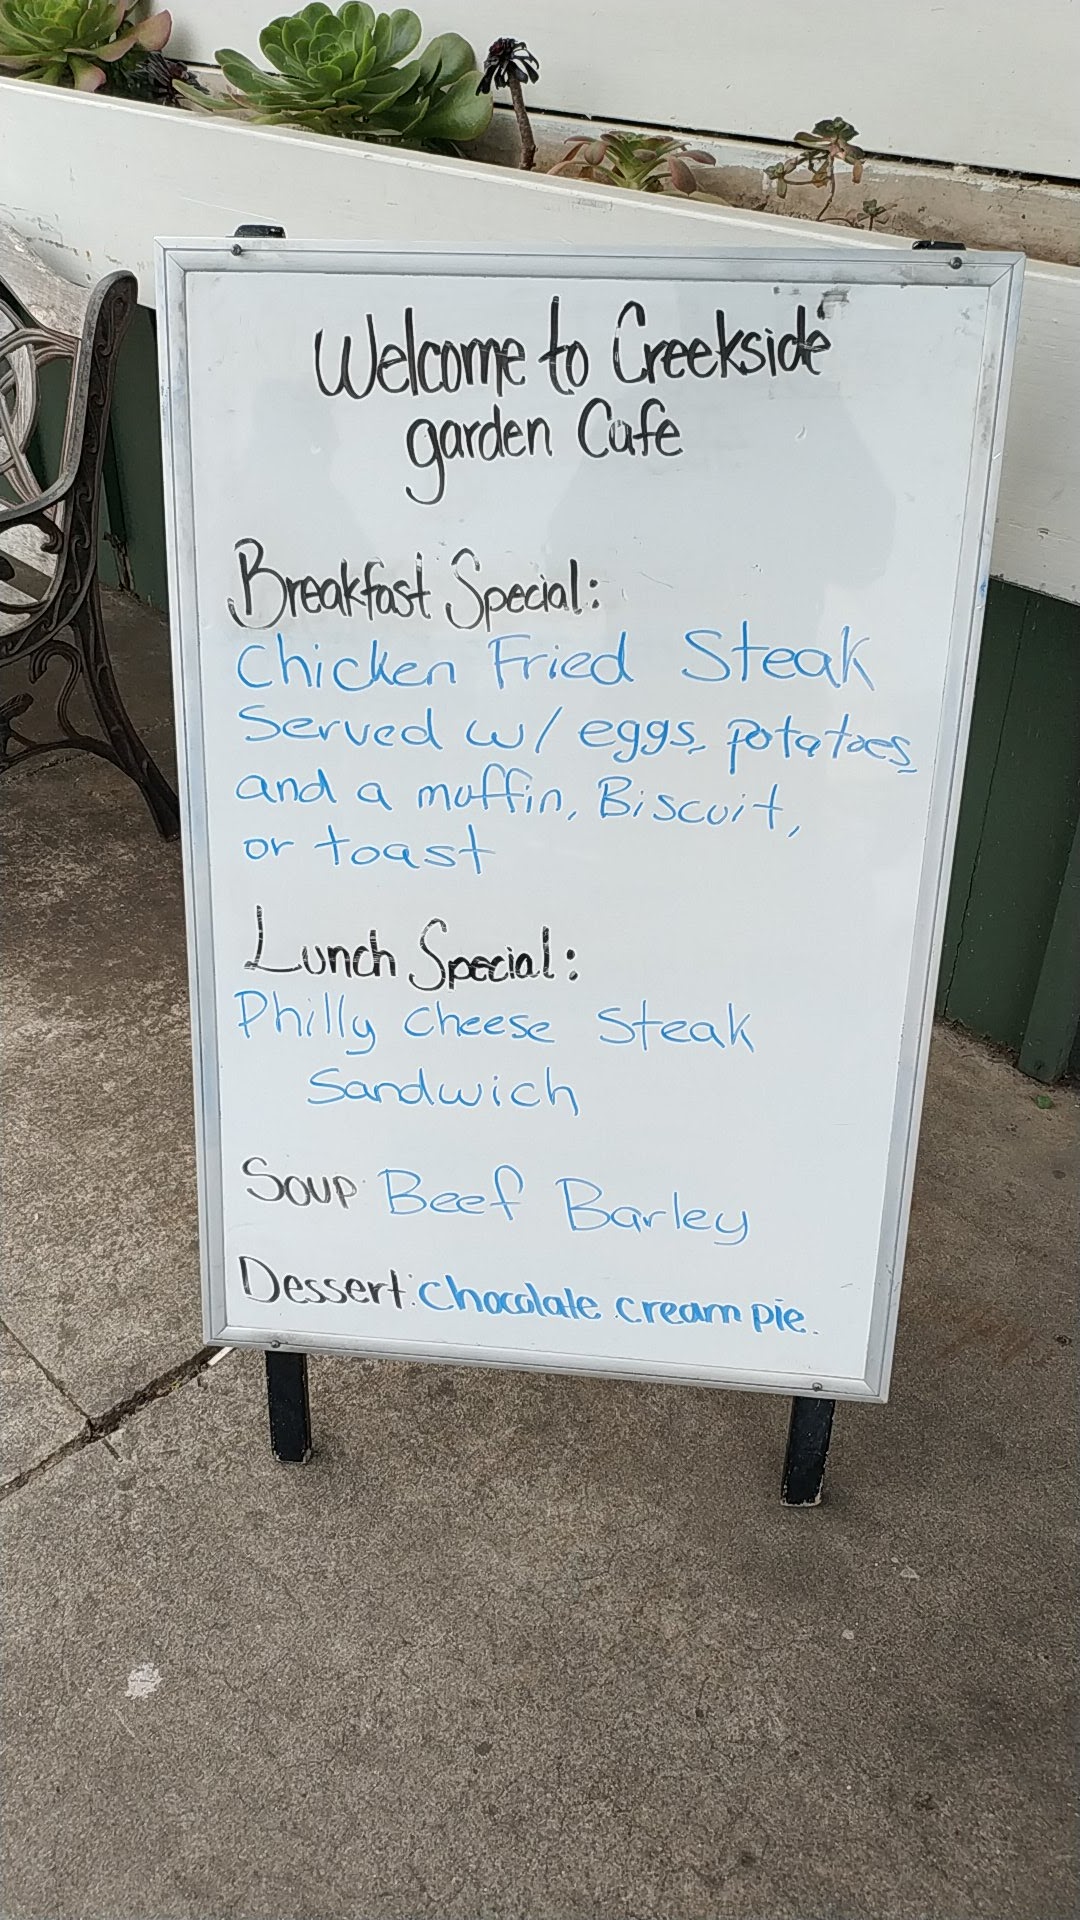 Welcome to Creekside
garden Cafe
Breakfast Special:
Chicken Fried Steak
Served w/ eggs, potatoes,
and a muffin, Biscuit,
or toast
Lunch Special:
Philly Cheese Steak
Sandwich
Soup: Beef Barley
Dessert: Chocolate cream pie.